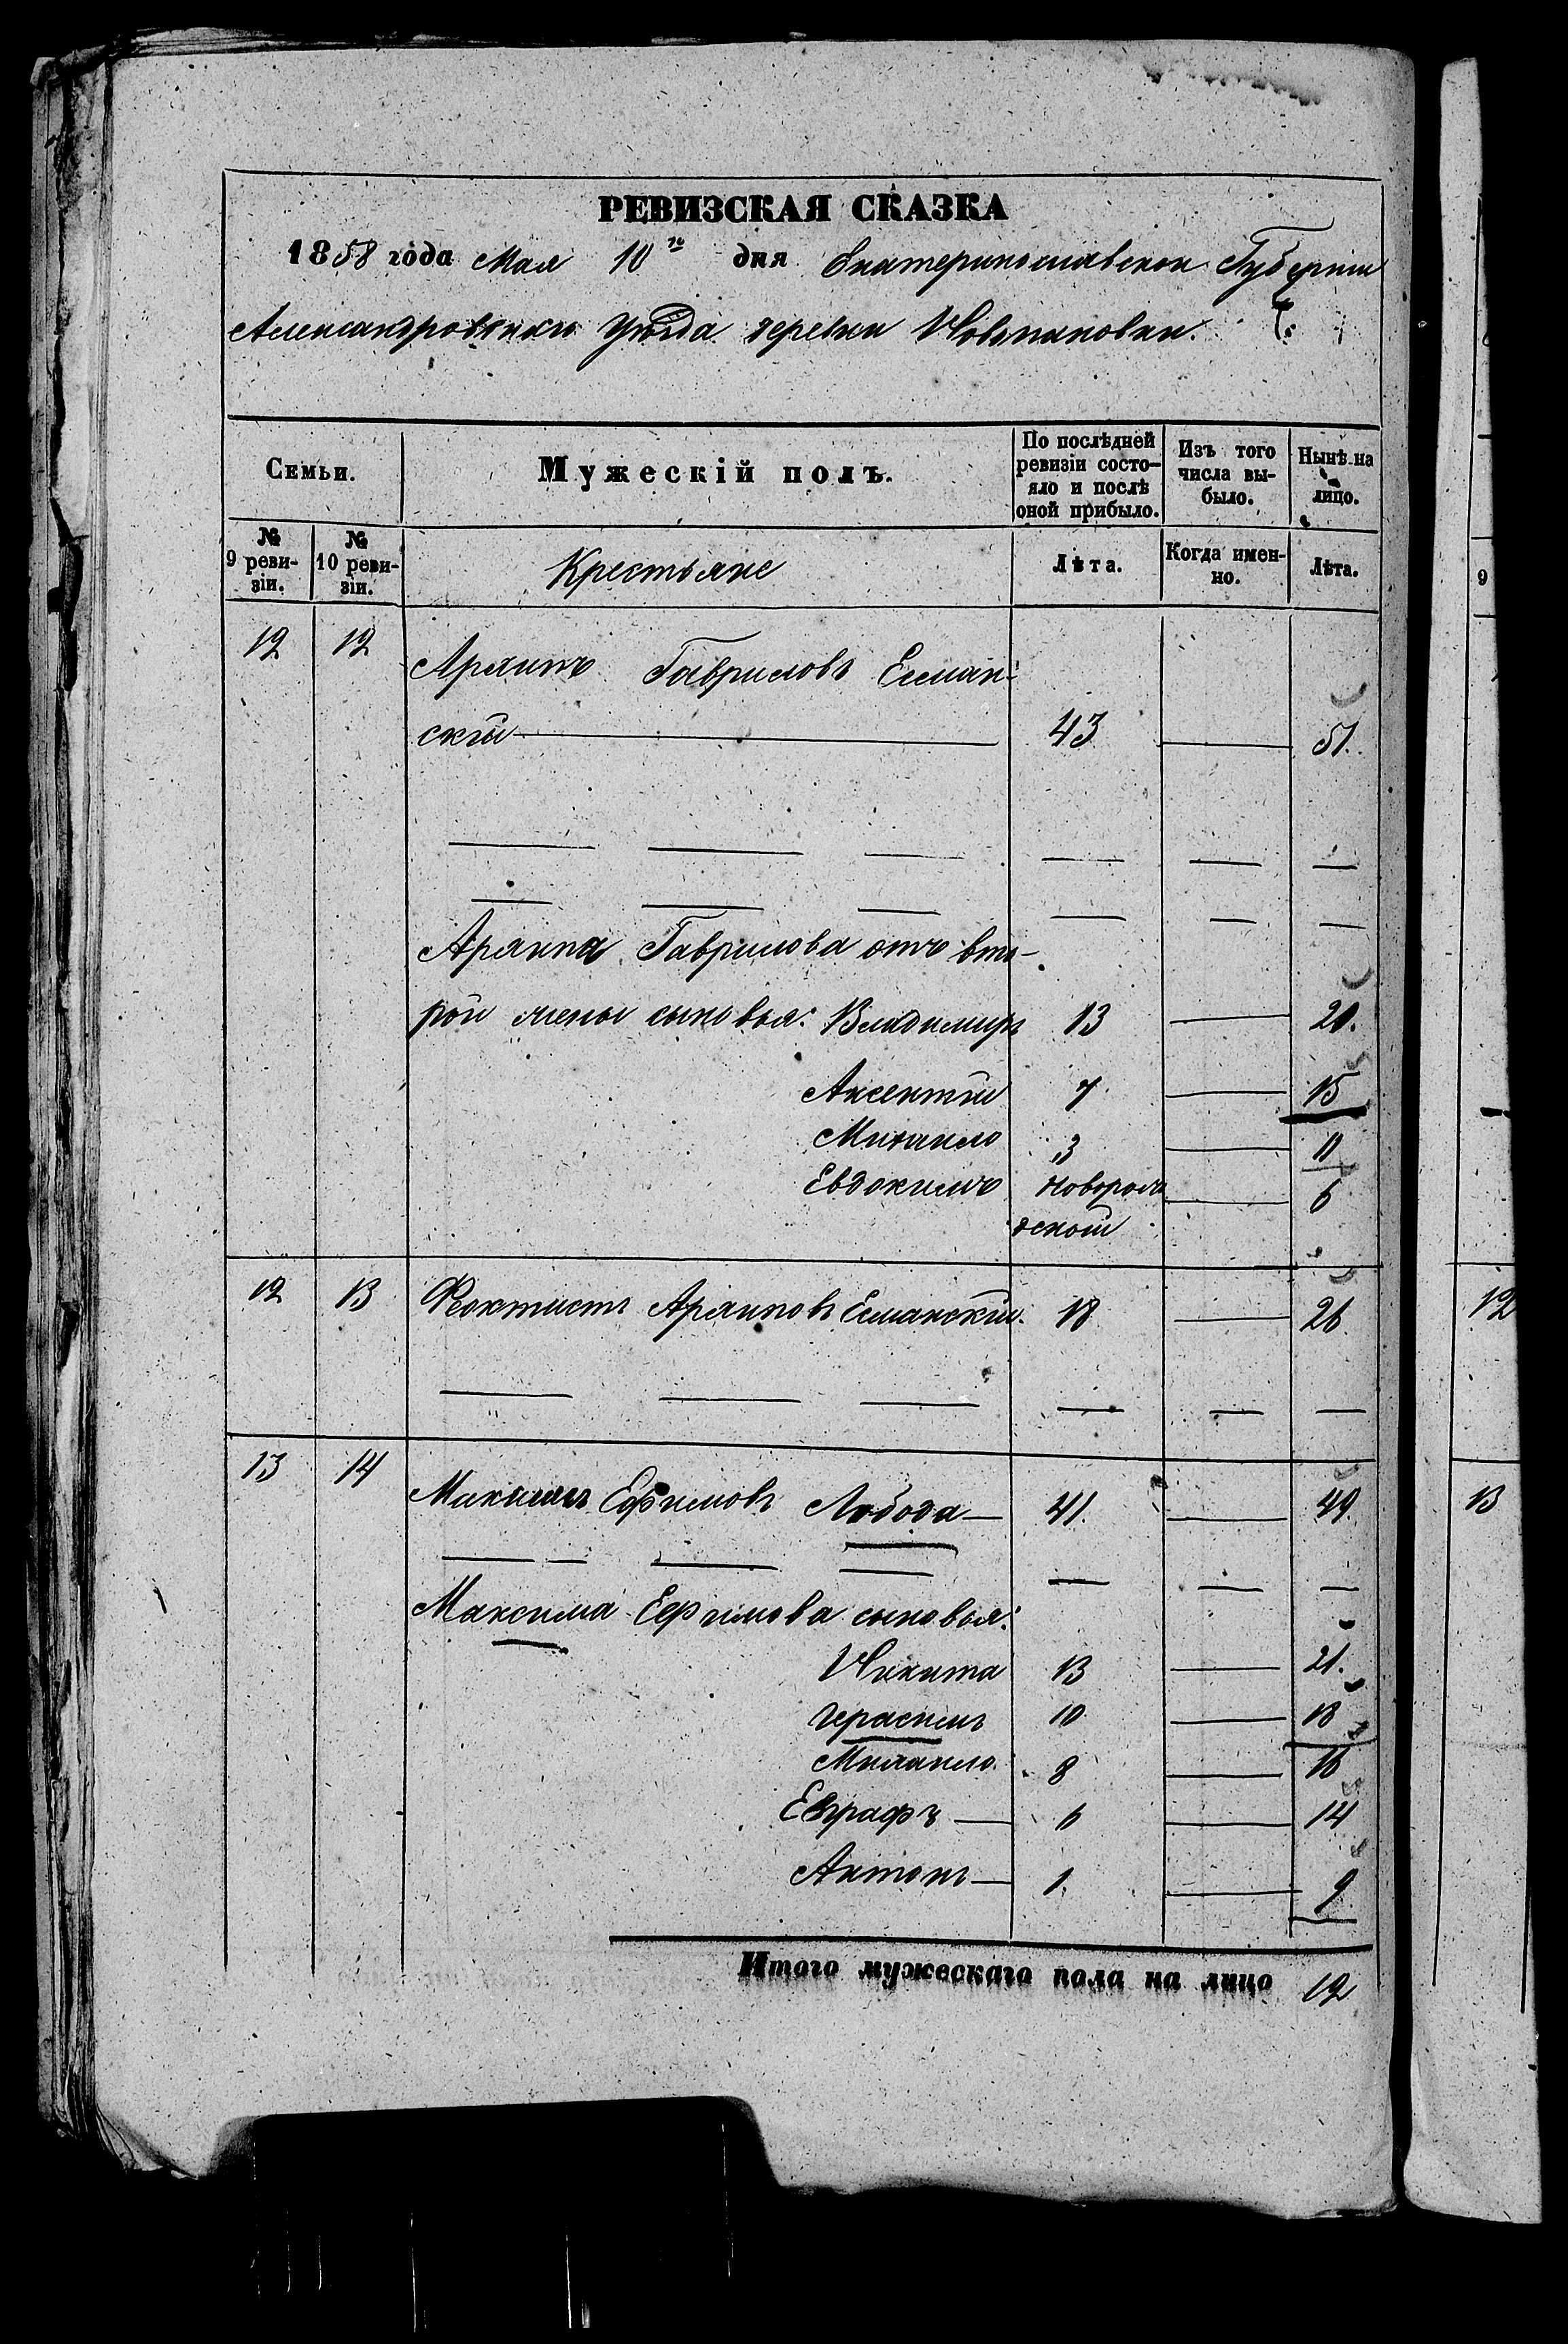 РЕВИЗСКАЯ СКАЗКА
1858 года Мая 10го дня Екатеринославской Губернии
Александровскаго Уѣзда деревни Новопановки.
Семьи. Мужескій полъ. По послѣдней ревизіи состояло и послѣ оной прибыло. Изъ того числа выбыло. Нынѣ на лицо.
№ 9 ревизіи. № 10 ревизіи. Крестьяне Лѣта. Когда именно. Лѣта.
12 12 Архипъ Гавриловъ Есман-
скій 43 51.
Архипа Гаврилова отъ вто-
рой жены сыновья: Владимиръ 13 20.
Аксентій 7 15
Михаило 3 11
Евдокимъ новорож 6
деной
12 13 Феоктистъ Архиповъ Есманскій. 18 26
13 14 Максимъ Ефимовъ Лобода 41. 49.
Максима Ефимова сыновья:
Никита 13 21.
Герасимъ 10 18
Михаило 8 16
Евграфъ 6 14
Антонъ 1. 9
Итого мужескаго пола на лицо 12
9
12
13